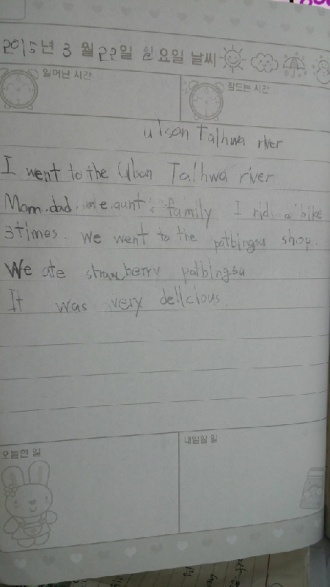 2015년 3월 22일 일요일 날씨
일어난 시간
잠드는 시간
ulsan Taihwa river
I went to the Ulsan Taihwa river
Mom. dad. me. aunt. family I rid a bike
3times. We went to the patbingsu shop.
We ate strawberry patbingsu
It was very delicious.
오늘한 일
내일할 일